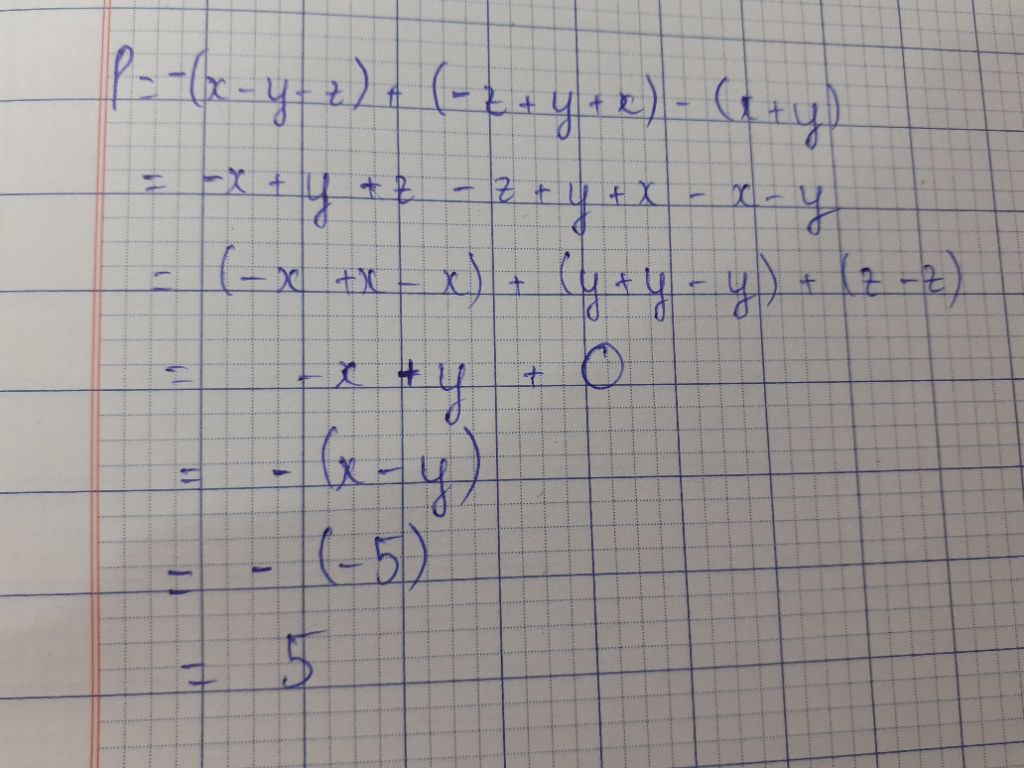 P = -(x - y - z) + (-z + y + x) - (x + y)
= -x + y + z - z + y + x - x - y
= (-x + x - x) + (y + y - y) + (z - z)
= -x + y + 0
= -(x - y)
= -(-5)
= 5